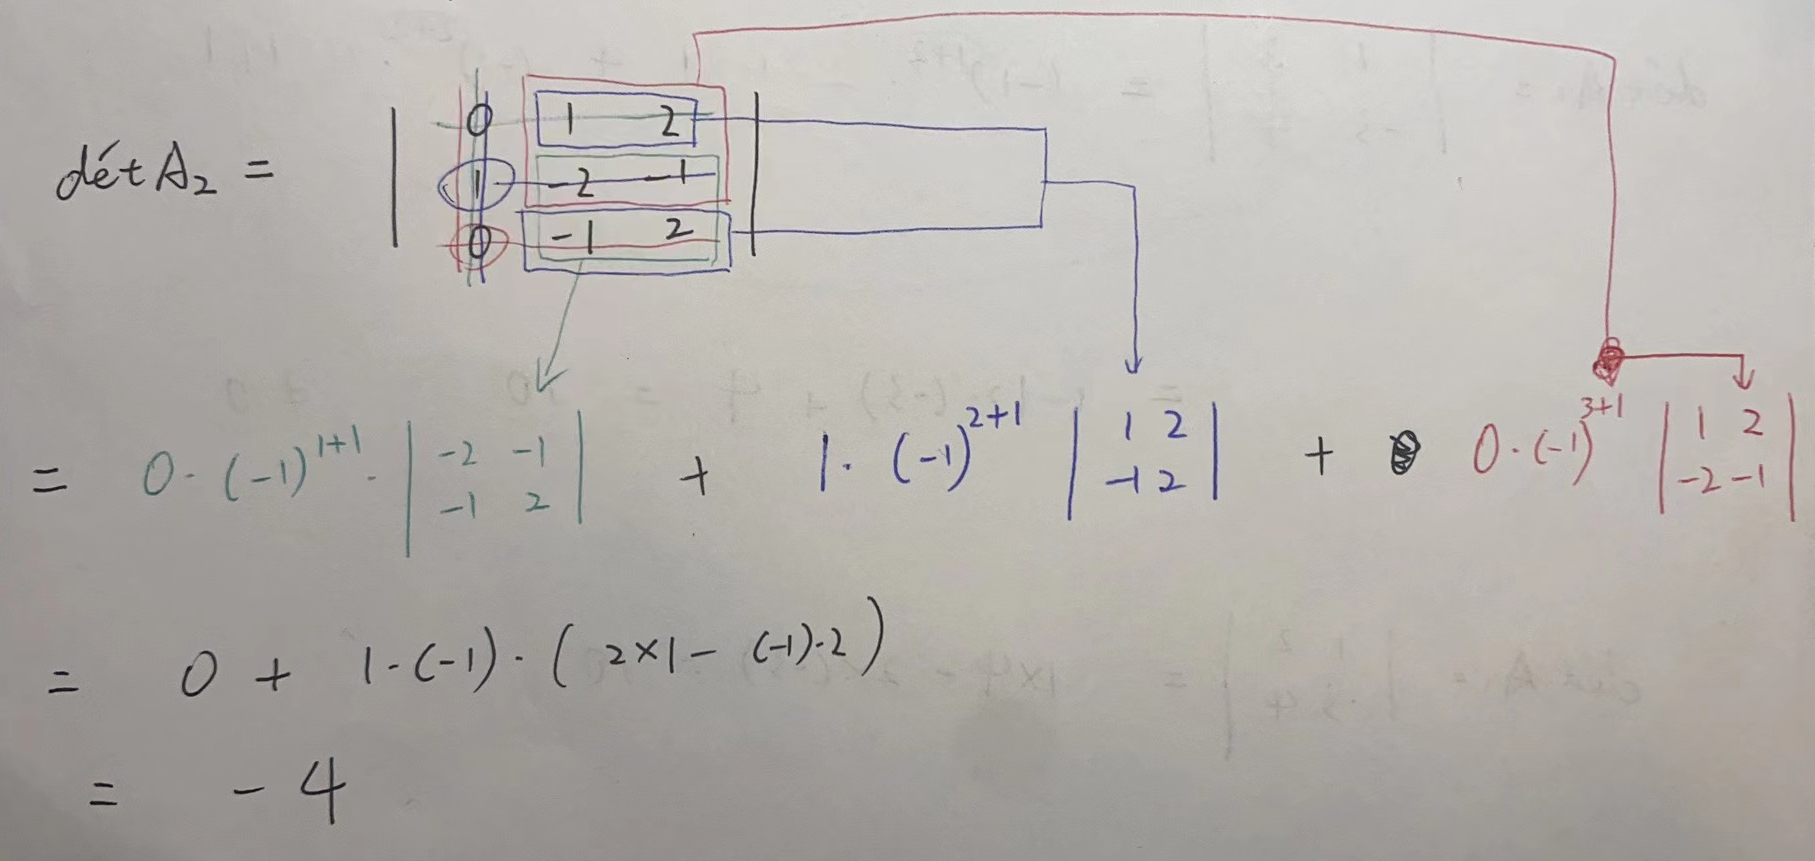 détA₂ = | 0 1 2 |
| 1 -2 -1 |
| 0 -1 2 |
= 0·(-1)¹⁺¹· | -2 -1 | + 1·(-1)²⁺¹ | 1 2 | + 0·(-1)³⁺¹ | 1 2 |
| -1 2 | | -1 2 | | -2 -1 |
= 0 + 1·(-1)·(2×1 - (-1)·2)
= -4